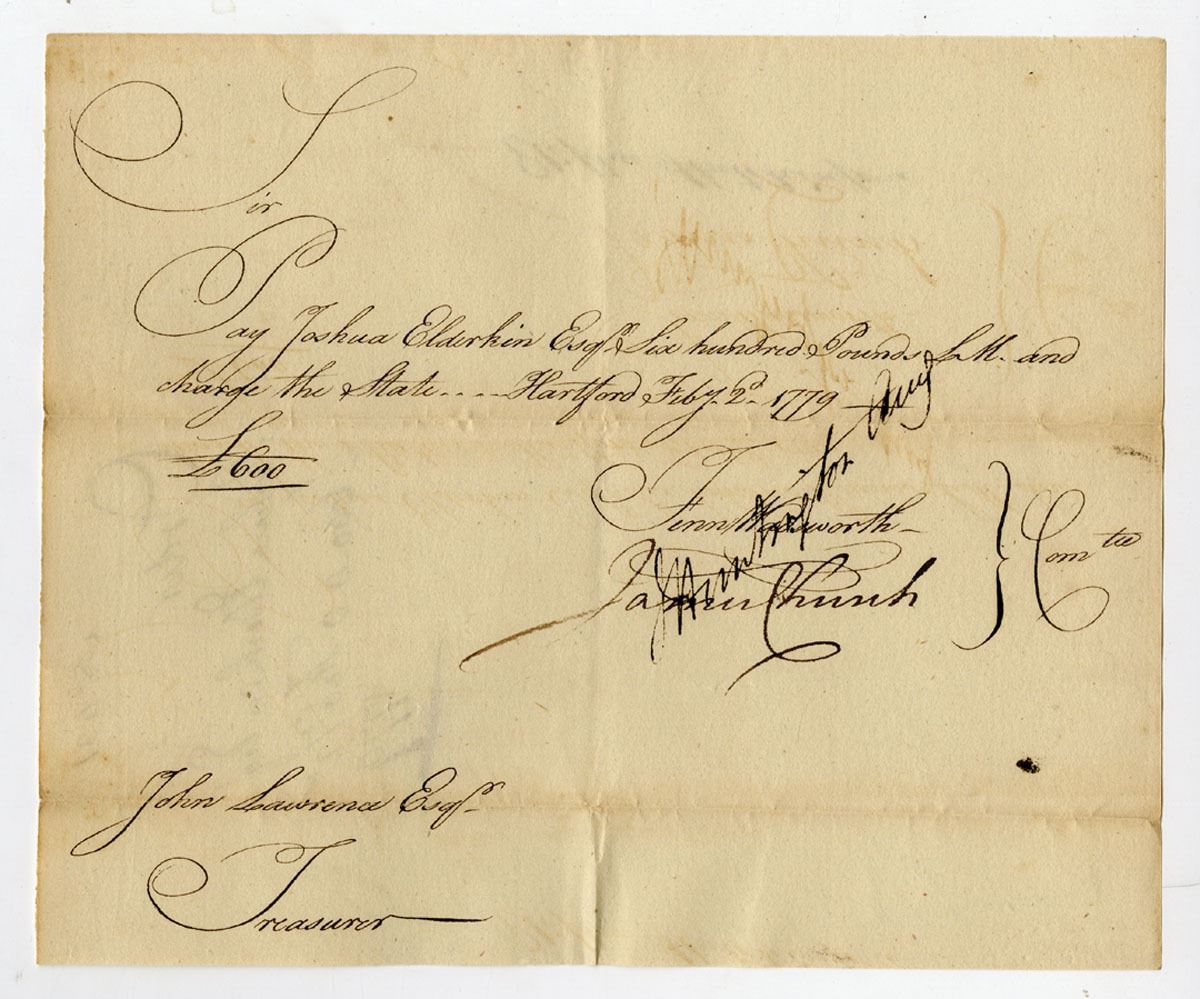 Sir
Pay Joshua Elderkin Esqr. Six hundred Pounds L.M. and
charge the State .... Hartford Feby. 2d. 1779
£600
Fenn Wadsworth
James Church
} Comtee
J Huntington
John Lawrence Esqr.
Treasurer